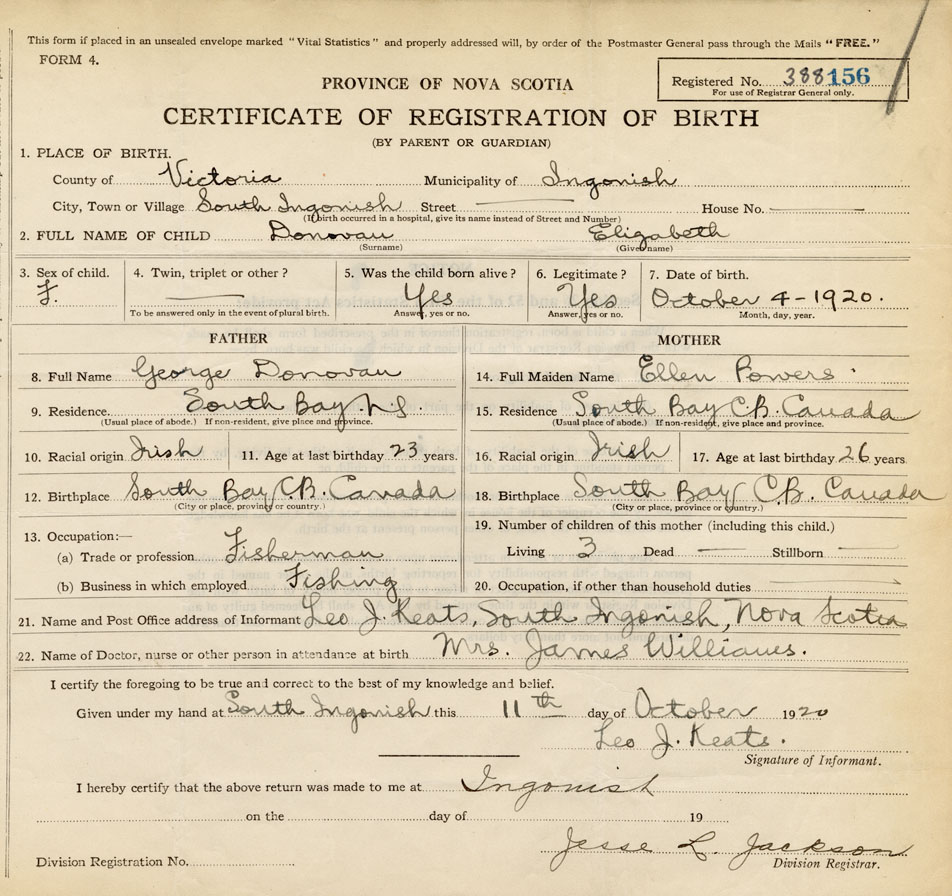 This form if placed in an unsealed envelope marked "Vital Statistics" and properly addressed will, by order of the Postmaster General pass through the Mails "FREE."
FORM 4.
Registered No. 388156
For use of Registrar General only.
PROVINCE OF NOVA SCOTIA
CERTIFICATE OF REGISTRATION OF BIRTH
(BY PARENT OR GUARDIAN)
1. PLACE OF BIRTH.
County of Victoria Municipality of Ingonish
City, Town or Village South Ingonish Street — House No. —
(If birth occurred in a hospital, give its name instead of Street and Number)
2. FULL NAME OF CHILD Donovan Elizabeth
(Surname) (Given name)
3. Sex of child. 4. Twin, triplet or other? 5. Was the child born alive? 6. Legitimate? 7. Date of birth.
F. — Yes Yes October 4-1920.
To be answered only in the event of plural birth. Answer, yes or no. Answer, yes or no. Month, day, year.
FATHER MOTHER
8. Full Name George Donovan 14. Full Maiden Name Ellen Powers
9. Residence. South Bay N.S. 15. Residence South Bay C.B. Canada
(Usual place of abode.) If non-resident, give place and province. (Usual place of abode.) If non-resident, give place and province.
10. Racial origin Irish 11. Age at last birthday 23 years. 16. Racial origin Irish 17. Age at last birthday 26 years.
12. Birthplace South Bay C.B. Canada 18. Birthplace South Bay C.B. Canada
(City or place, province or country.) (City or place, province or country.)
13. Occupation:— 19. Number of children of this mother (including this child.)
(a) Trade or profession Fisherman Living 3 Dead — Stillborn —
(b) Business in which employed Fishing 20. Occupation, if other than household duties
21. Name and Post Office address of Informant Leo J. Keats, South Ingonish, Nova Scotia
22. Name of Doctor, nurse or other person in attendance at birth Mrs. James Williams.
I certify the foregoing to be true and correct to the best of my knowledge and belief.
Given under my hand at South Ingonish this 11th day of October 1920
Leo J. Keats.
Signature of Informant.
I hereby certify that the above return was made to me at Ingonish
on the day of 19
Jesse L. Jackson
Division Registration No. Division Registrar.